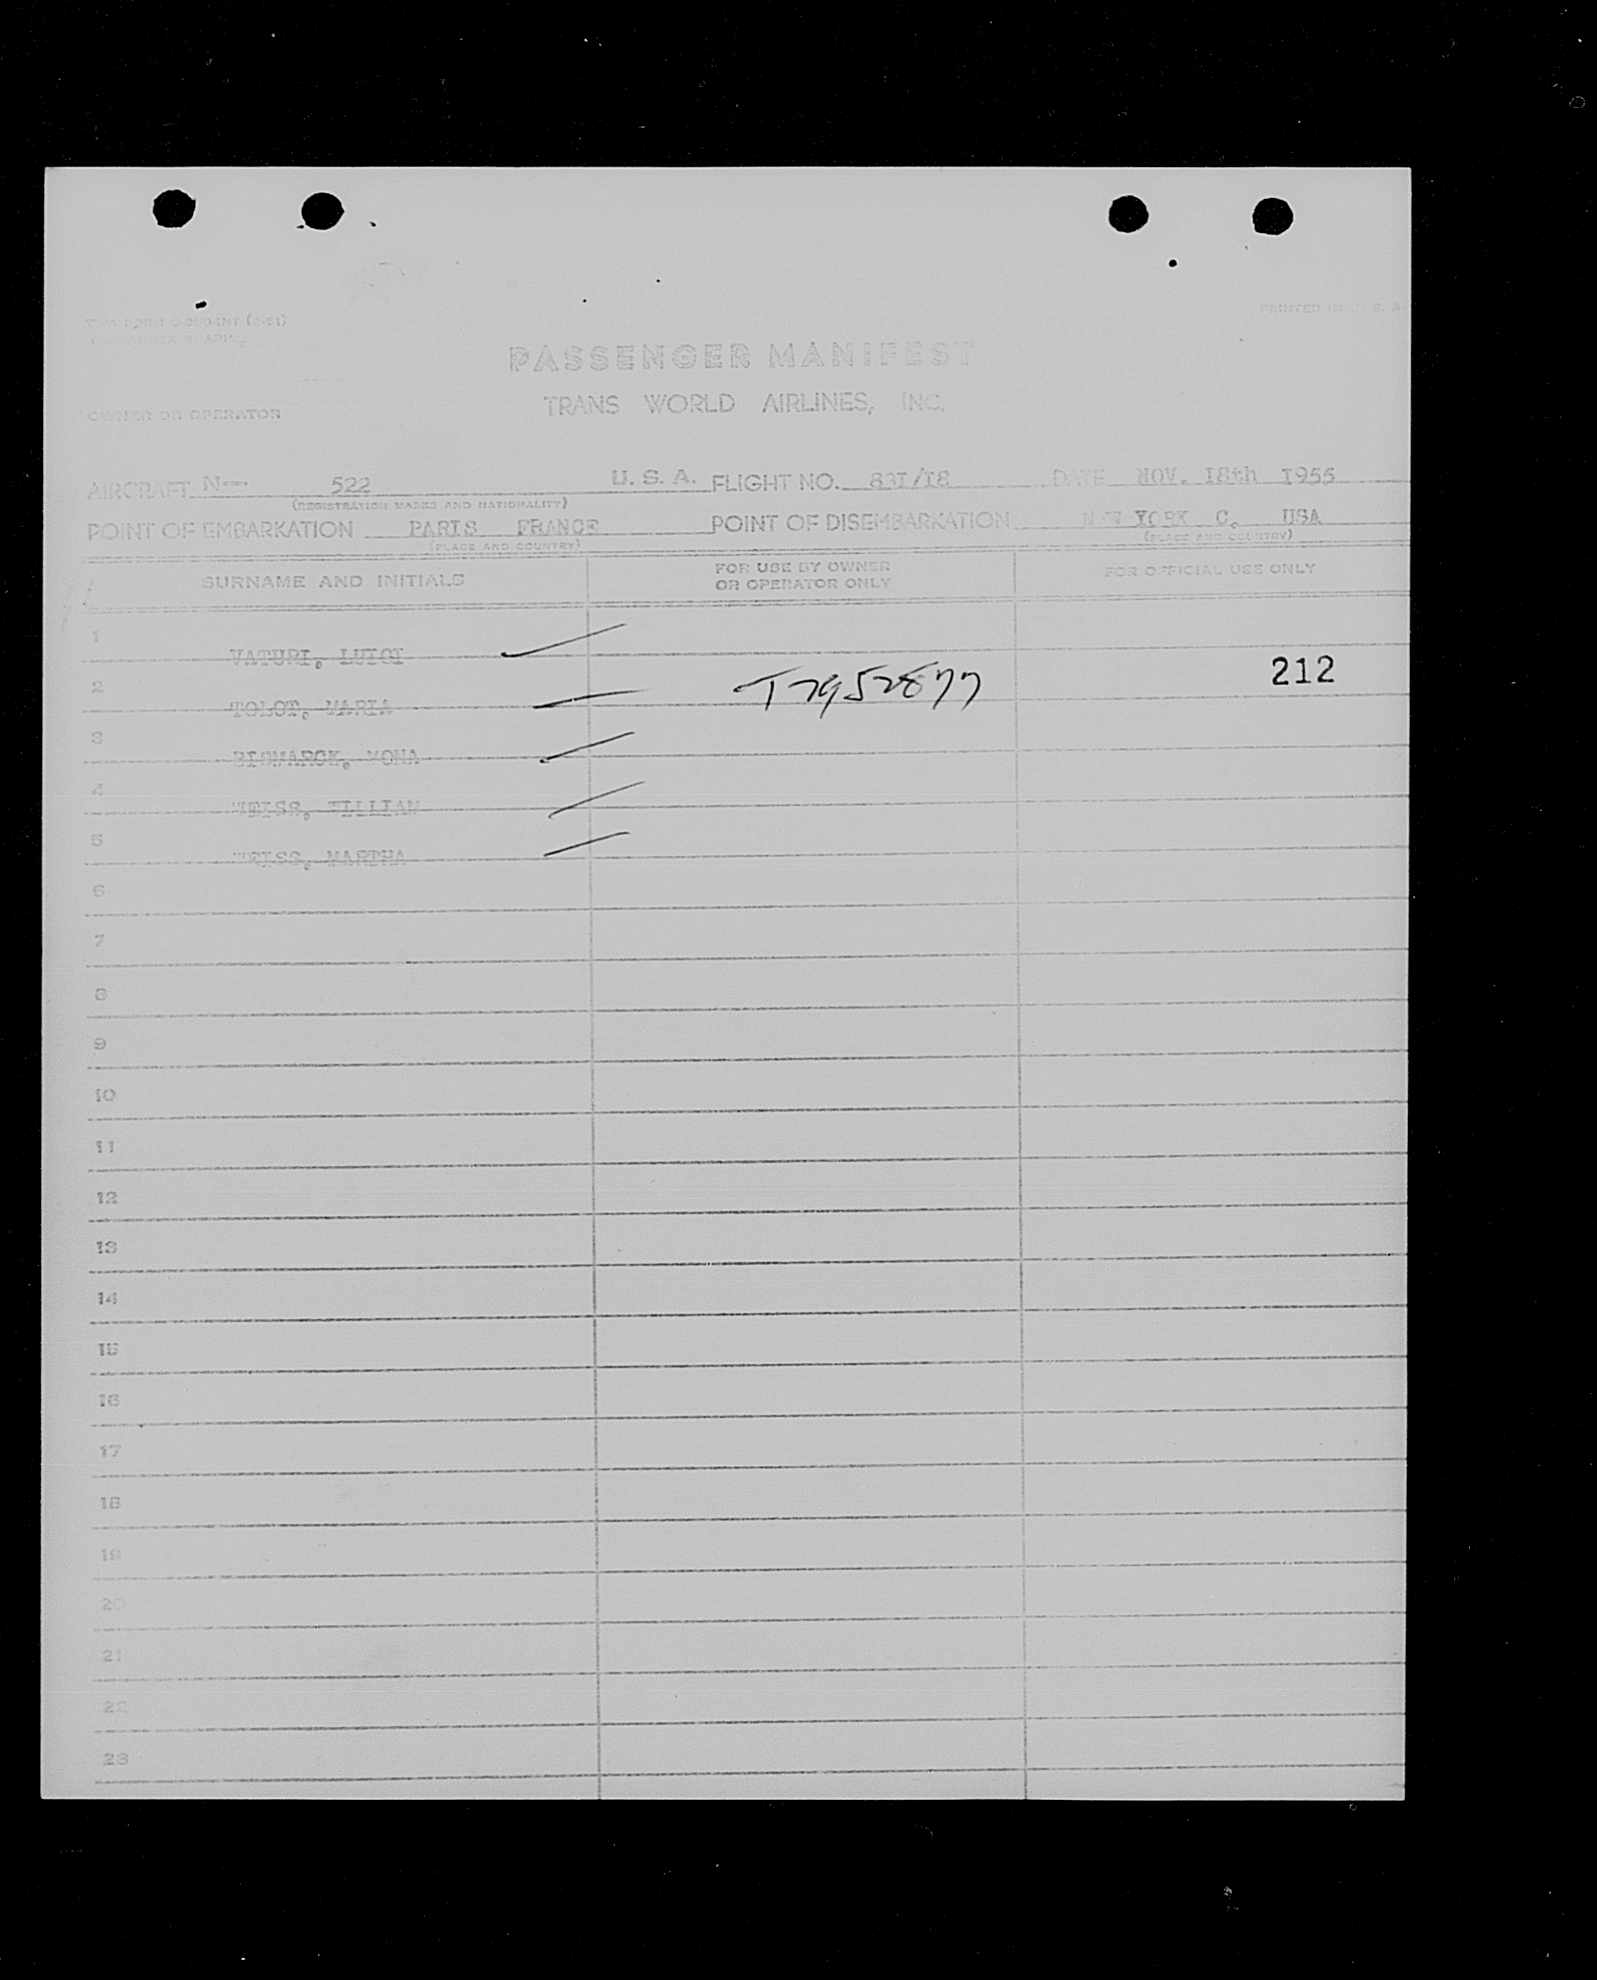 PRINTED IN U. S. A.
PASSENGER MANIFEST
OWNER OR OPERATOR
TRANS WORLD AIRLINES, INC.
AIRCRAFT N-- 522 U. S. A. FLIGHT NO. 83I/I8 DATE NOV. I8th I955
(REGISTRATION MARKS AND NATIONALITY)
POINT OF EMBARKATION PARIS FRANCE POINT OF DISEMBARKATION NEW YORK C. USA
(PLACE AND COUNTRY) (PLACE AND COUNTRY)
SURNAME AND INITIALS
FOR USE BY OWNER
OR OPERATOR ONLY
FOR OFFICIAL USE ONLY
1 VATURI, LUIGI
2 TOLOT, MARIA T 7952877 212
3 BISMARCK, MONA
4 WEISS, WILLIAM
5 WEISS, MARTHA
6
7
8
9
10
11
12
13
14
15
16
17
18
19
20
21
22
23